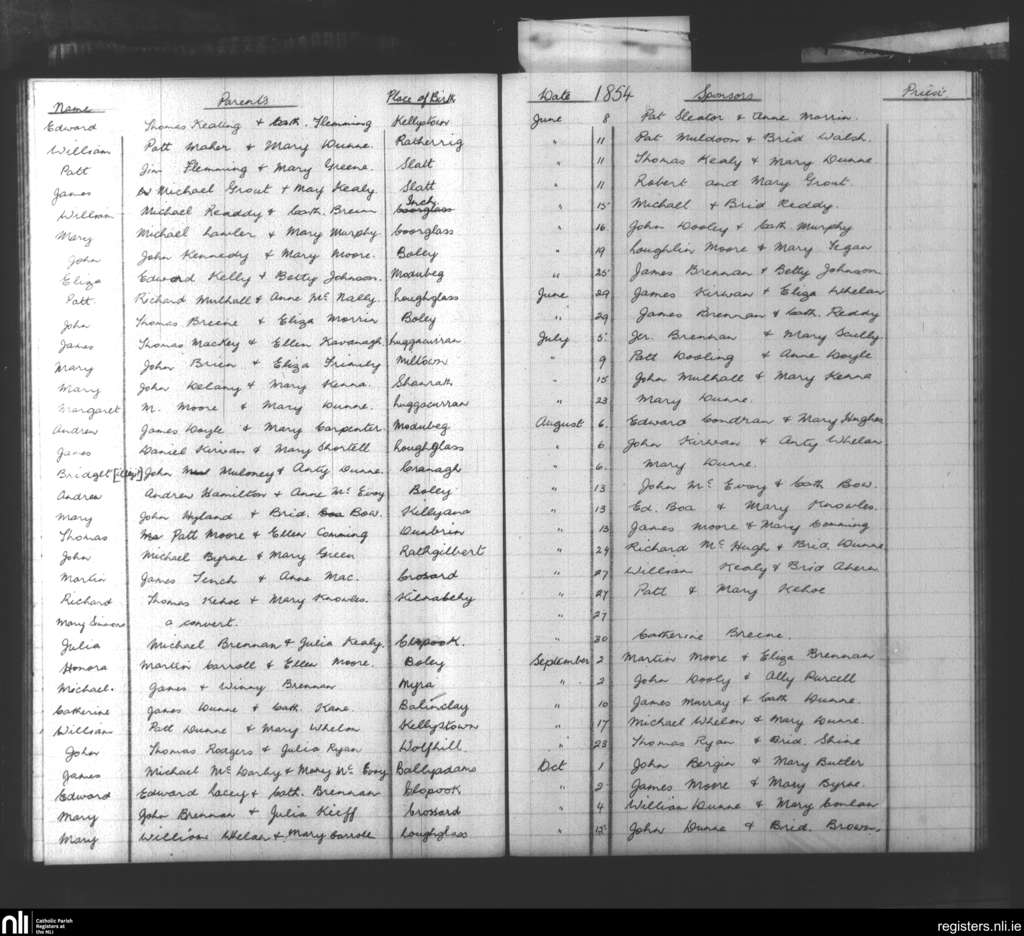 Name Parents Place of Birth Date 1854 Sponsors Priest
Edward Thomas Keating & Cath. Flemming Kellystown June 8 Pat Sleator & Anne Morrin
William Patt Maher & Mary Dunne. Ratherrig " 11 Pat Muldoon & Brid Walsh.
Patt Jim Flemming & Mary Greene. Slatt " 11 Thomas Kealy & Mary Dunne
James Michael Grout & May Kealy Slatt " 11 Robert and Mary Grout.
William Michael Readdy & Cath. Breen Inch Coorglass " 15 Michael & Brid Reddy.
Mary Michael Lawler & Mary Murphy. Coorglass " 16 John Dooley & Cath Murphy
John John Kennedy & Mary Moore. Boley " 19 Loughlin Moore & Mary Fegan
Eliza Edward Kelly & Betty Johnson. Modubeg " 25 James Brennan & Betty Johnson
Patt. Richard Mulhall & Anne Mc Nally. Loughglass June 29 James Kirwan & Eliza Whelan
John Thomas Breene & Eliza Morrin Boley " 29 James Brennan & Cath. Reddy
James Thomas Mackey & Ellen Kavanagh. Luggacurran July 5 Jer. Brennan & Mary Scully
Mary John Brien & Eliza Trinity Milltown " 9 Patt Dooling & Anne Doyle
Mary John Delany & Mary Kenna. Shanrath " 15 John Mulhall & Mary Kenna
Margaret M. Moore & Mary Dunne. Luggacurran " 23 Mary Dunne.
Andrew James Doyle & Mary Carpenter. Modubeg August 6. Edward Condran & Mary Hughes
James Daniel Kirwan & Mary Shortell Loughglass " 6 John Kirwan & Anty Whelan
Bridget John Muloney & Anty Dunne. Cranagh " 6. Mary Dunne.
Andrew Andrew Hamilton & Anne Mc Evoy Boley " 13 John Mc Evoy & Cath Bow.
Mary John Hyland & Brid. Boa Bow. Kellyana " 13 Ed. Boa & Mary Knowles.
Thomas Patt Moore & Ellen Comming Dunbrin " 13 James Moore & Mary Comming
John Michael Byrne & Mary Green Rathgilbert " 24 Richard Mc Hugh & Brid. Dunne
Martin James Tench & Anne Mac. Crossard " 27 William Kealy & Brid Ahern
Richard Thomas Kehoe & Mary Knowles. Kilnabehy " 27 Patt & Mary Kehoe
Mary a convert. " 27
Julia Michael Brennan & Julia Kealy. Clopook. " 30 Catherine Breene.
Honora Martin Carroll & Ellen Moore. Boley September 2 Martin Moore & Eliza Brennan
Michael. James & Winny Brennan Myra " 2 John Dooly & Ally Purcell
Catherine James Dunne & Cath. Kane. Balinclay " 10 James Murray & Cath Dunne.
William Patt Dunne & Mary Whelan Kellystown " 17 Michael Whelan & Mary Dunne.
John Thomas Rodgers & Julia Ryan Wolfhill. " 23 Thomas Ryan & Brid. Shine
James Michael Mc Darby & Mary Mc Evoy Ballyadams Oct 1 John Bergin & Mary Butler
Edward Edward Lacey & Cath. Brennan Clopook " 2 James Moore & Mary Byrne.
Mary John Brennan & Julia Kieff Crossard " 4 William Dunne & Mary Conlan
Mary William Whelan & Mary Carroll Loughglass " 12 John Dunne & Brid. Brown.
nli Catholic Parish Registers at the NLI registers.nli.ie